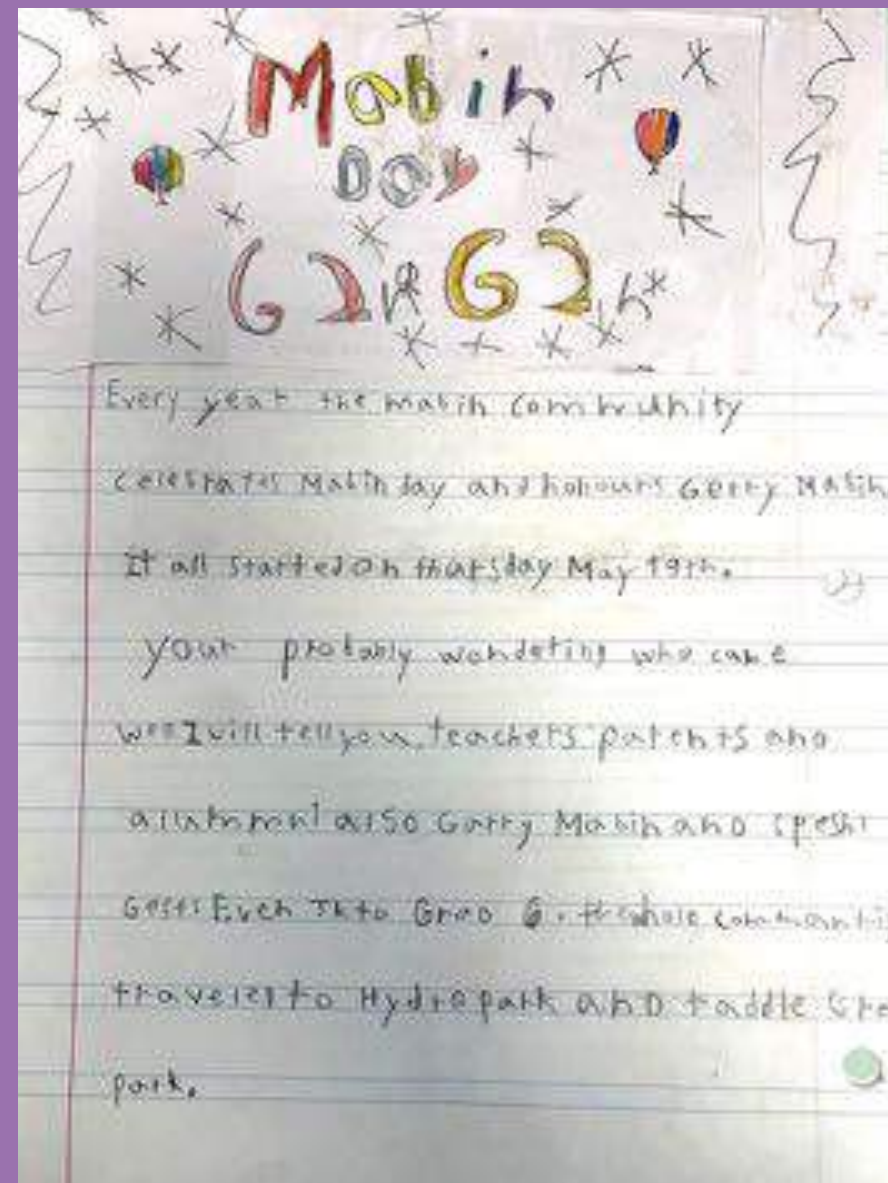 Mabin
Day
Every year the mabin Community
celebrates Mabin day and honours Gerry Mabin
It all started on thursday May 19th.
your probably wondering who came
well I will tell you, teachers parents and
also Garry Mabin and speshl
Even Jk to Grad 6. the whole
traveled to Hydro park and taddle
park.